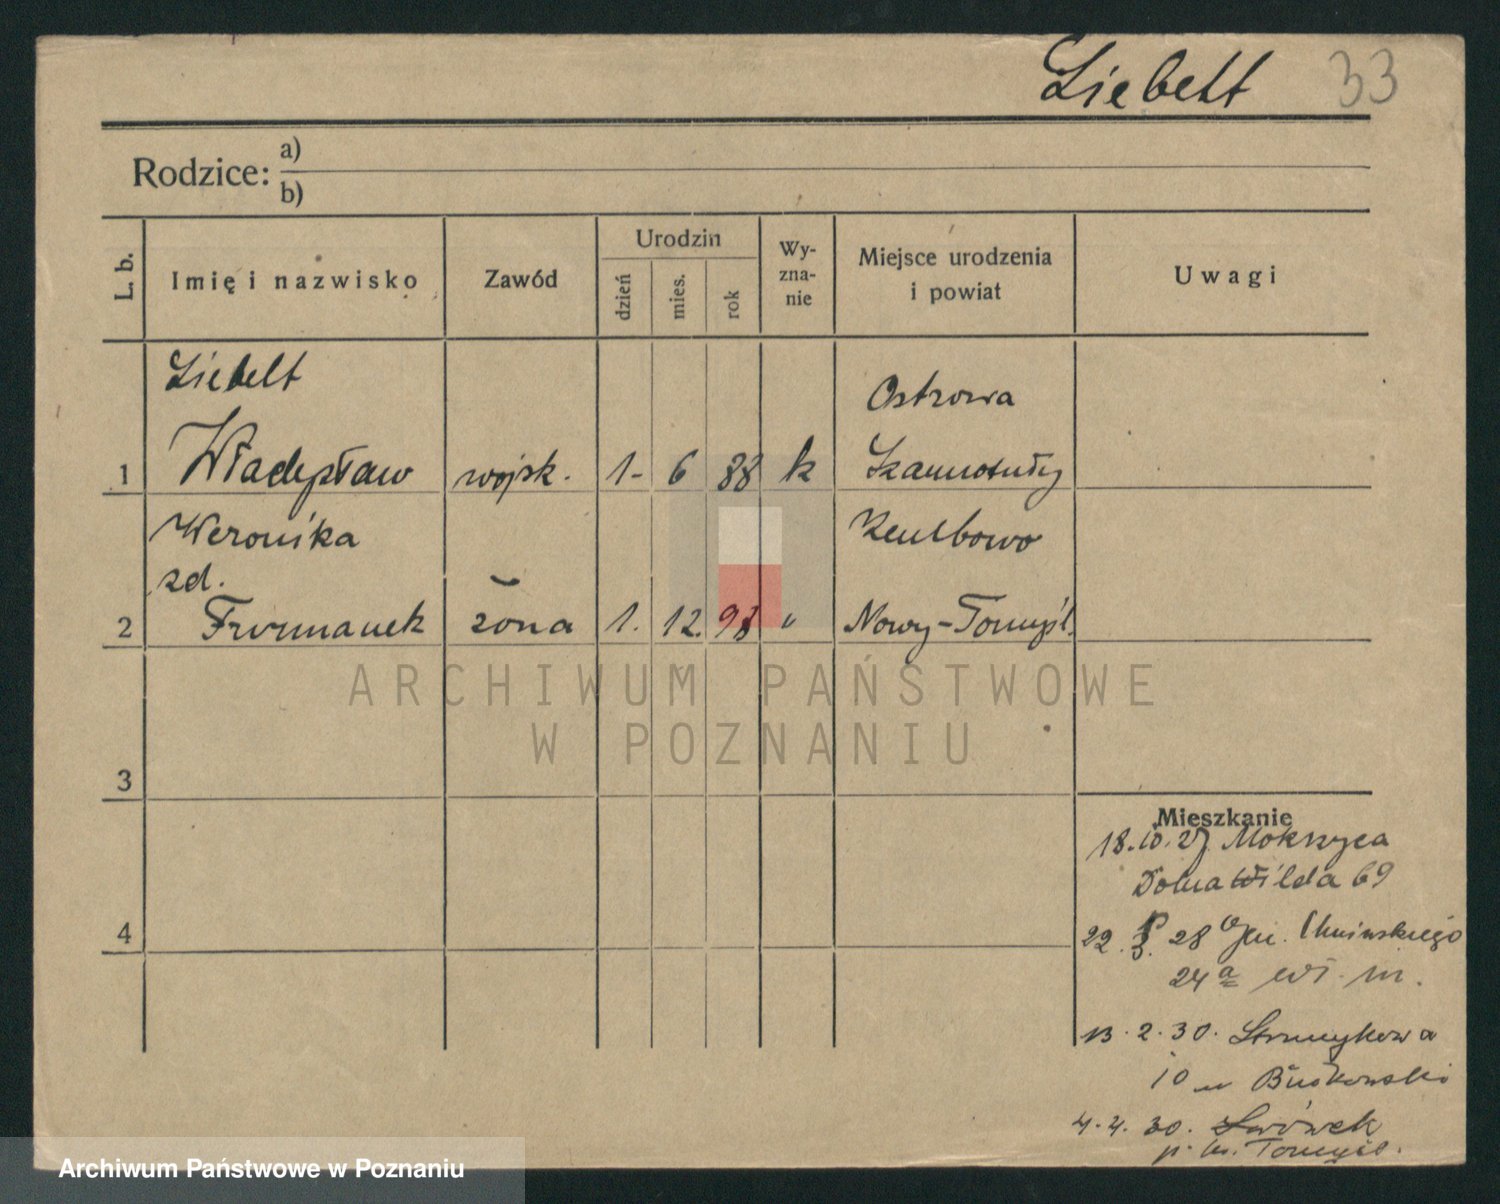 Liebelt 33
Rodzice: a)
b)
L. b. Imię i nazwisko Zawód Urodzin dzień mies. rok Wy-zna-nie Miejsce urodzenia i powiat Uwagi
Liebelt Ostrowa
1 Władysław wojsk. 1- 6 88 k Szamotuły
Weronika
zd.
2 Frormanek żona 1. 12. 98 " Nowy-Tomyśl.
3
4
Mieszkanie
18.10.27 Mokrzyca
Dolna Wilda 69
22. 28 24a wł. m.
13.2.30. Strumykowa
10 u
4.4.30. Lwówek
p. N. Tomyśl.
ARCHIWUM PAŃSTWOWE
W POZNANIU
Archiwum Państwowe w Poznaniu